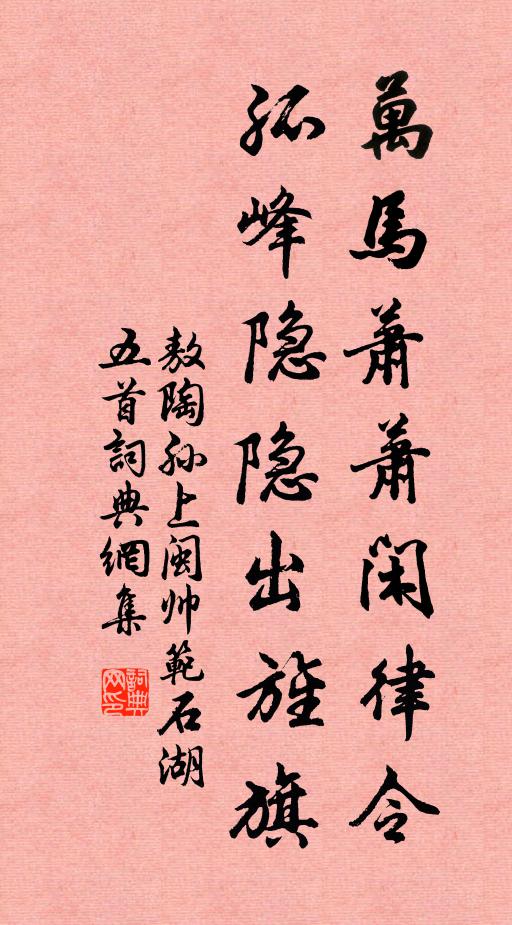 萬馬蕭蕭閑律令
孤峰隐隐出旌旗
敖陶孙上闽帅範石湖
五首詞典網集
詞典网印